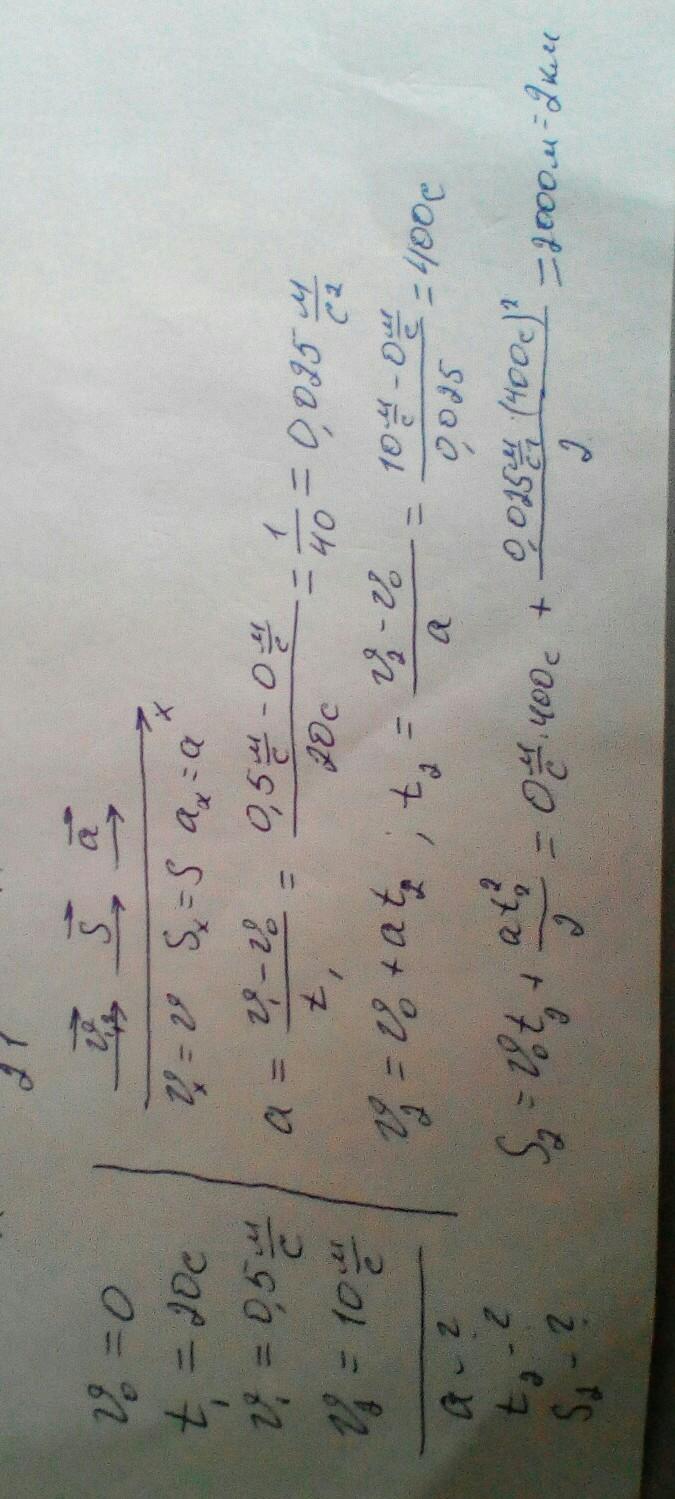 21
v₀ = 0
t₁ = 20с
v₁ = 0,5 м/с
v₂ = 10 м/с
a - ?
t₂ - ?
S₂ - ?
v₁,₂ S a
vₓ = v Sₓ = S aₓ = a x
a = (v₁ - v₀)/t₁ = (0,5 м/с - 0 м/с)/20с = 1/40 = 0,025 м/с²
v₂ = v₀ + at₂ ; t₂ = (v₂ - v₀)/a = (10 м/с - 0 м/с)/0,025 = 400с
S₂ = v₀t₂ + at₂²/2 = 0 м/с · 400с + (0,025 м/с² · (400с)²)/2 = 2000м = 2км